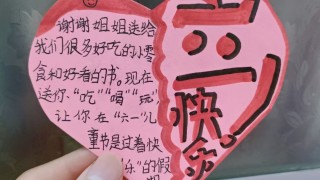 谢谢姐姐送给
我们很多好吃的小零
食和好看的书。现在
送你“吃”“喝”“玩”，
让你在“六一”儿
童节是过着快
乐”的假
期
快乐